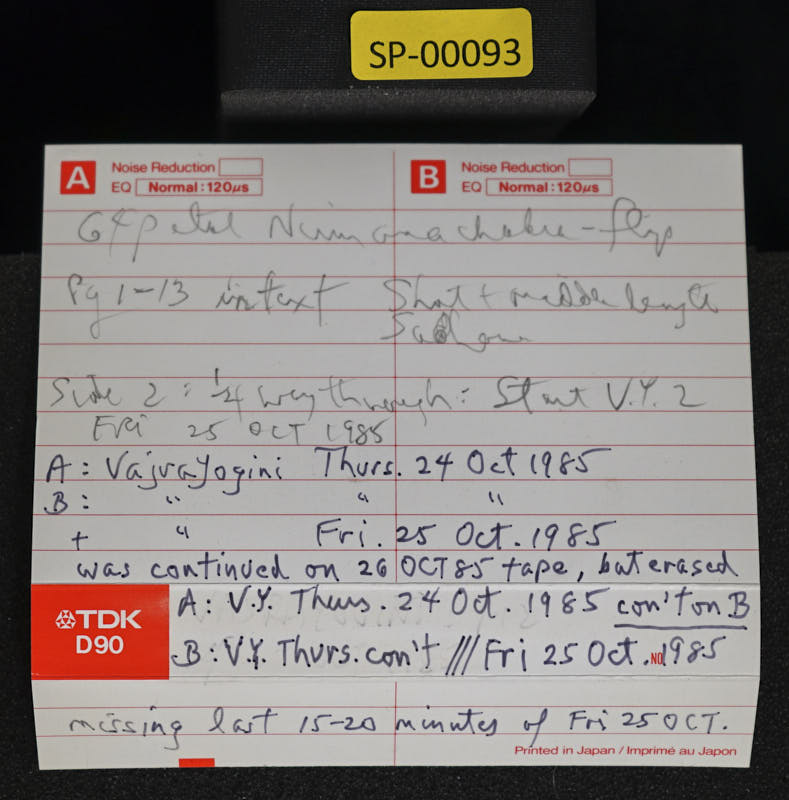 SP-00093
A Noise Reduction B Noise Reduction
EQ Normal : 120µs EQ Normal : 120µs
64 petal Nirmanachakra - flip
Pg 1-13 in text Short + middle length
Side 2 : 1/4 way through : Start V.Y. 2
Fri 25 OCT 1985
A : Vajrayogini Thurs. 24 Oct 1985
B : " " "
+ " Fri. 25 Oct. 1985
was continued on 26 OCT 85 tape, but erased
TDK
D90
A : V.Y. Thurs. 24 Oct. 1985 con't on B
B : V.Y. Thurs. con't /// Fri 25 Oct. 1985
NO.
missing last 15-20 minutes of Fri 25 OCT.
Printed in Japan / Imprimé au Japon